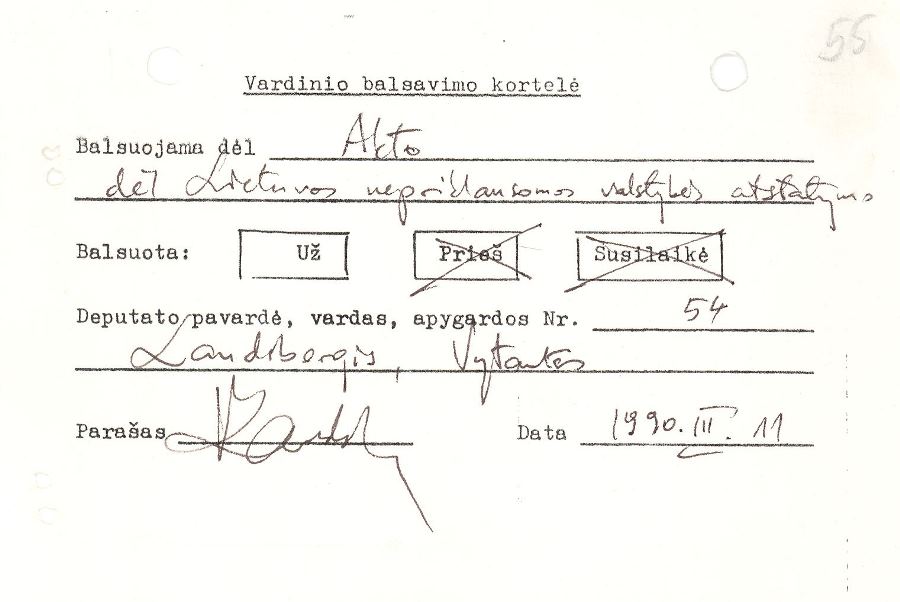 55
Vardinio balsavimo kortelė
Balsuojama dėl Akto
dėl Lietuvos nepriklausomos valstybės atstatymo
Balsuota: Už Prieš Susilaikė
Deputato pavardė, vardas, apygardos Nr. 54
Landsbergis, Vytautas
Parašas Data 1990.III.11